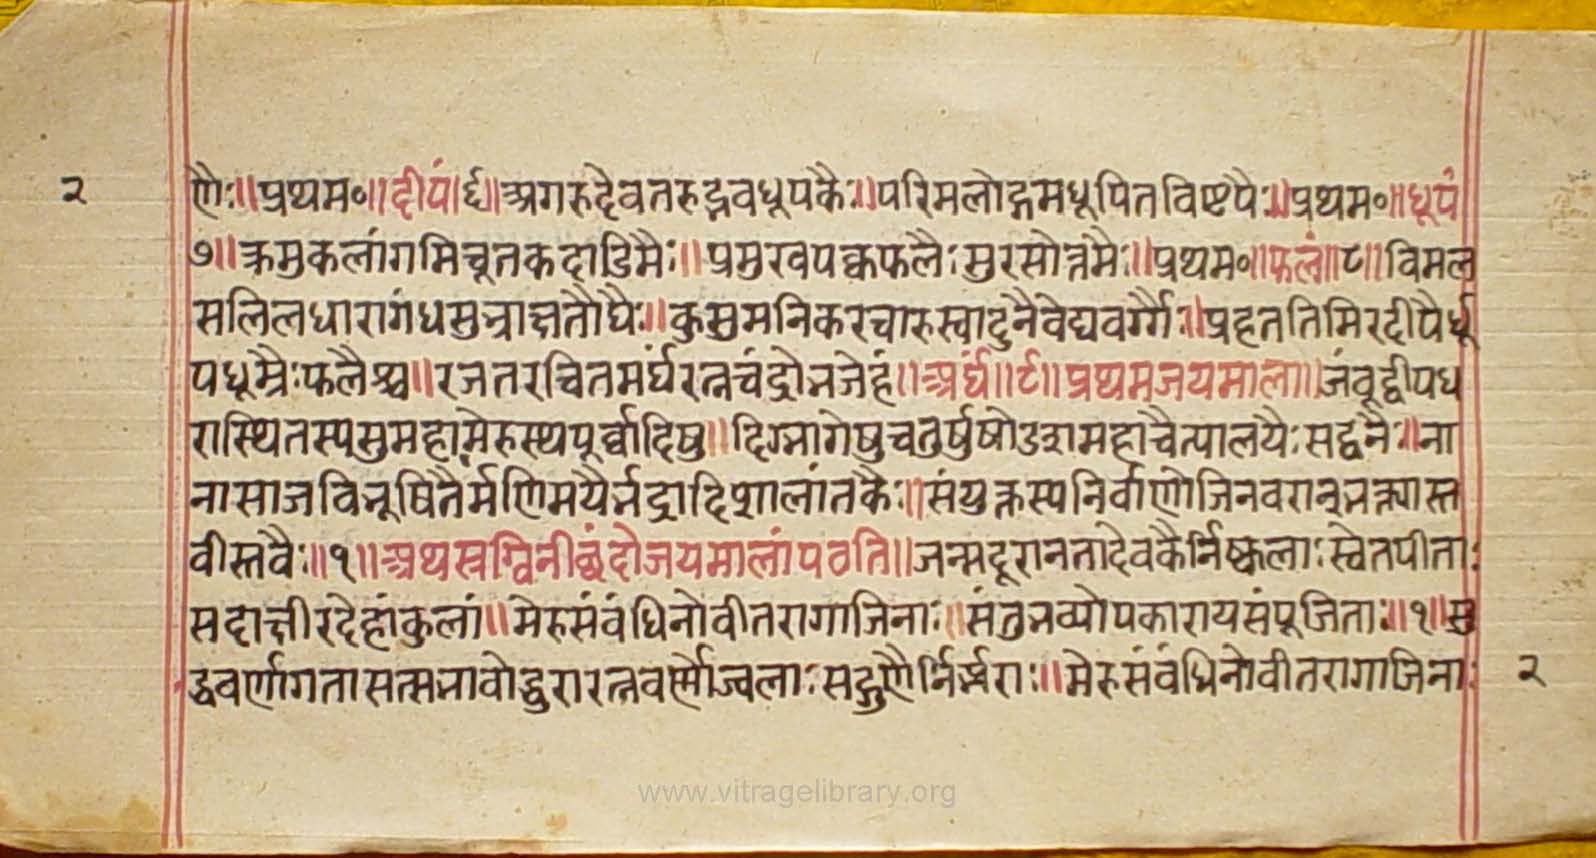 २
णैः॥प्रथम॰॥दीपं।६॥अगरुदेवतरुद्भवधूपकैः॥परिमलोद्गमधूपितविष्टपैः॥प्रथम॰॥धूपं
७॥क्रमुकलांगमिचूतकदाडिमैः॥प्रमुखपक्वफलैःसुरसोत्तमैः॥प्रथम॰॥फलं॥८॥विमल
सलिलधारागंधसुभ्राक्षतौघैः॥कुसुमनिकरचारुस्वादुनैवेद्यवर्ग्गैः॥प्रहततिमिरदीपैर्धू
पधूम्रैःफलैश्च॥रजतरचितमर्घंरत्नचंद्रोभजेहं॥अर्घं॥९॥प्रथमजयमाला॥जंबूद्वीपध
रास्थितस्यसुमहामेरुस्थपूर्व्वादिषु॥दिग्भागेषुचतुर्षुषोडशमहाचैत्यालयैःसद्वनैः॥ना
नासाजविभूषितैर्मणिमयैर्भद्रादिशालांतकैः॥संयुक्तस्यनिर्वाणोजिनवरान्भक्त्यास्त
वीस्तवैः॥१॥अथस्रग्विनीछंदोजयमालांपठति॥जन्मदूरानतादेवकैर्निष्कलाःस्वेतपीताः
सदाक्षीरदेहांकुलां॥मेरुसंबंधिनोवीतरागाजिनाः॥संतुभव्योपकारायसंपूजिताः॥१॥सु
द्धवर्णागतासत्सभावोद्धुरारत्नवर्णोज्वलाःसद्गुणैर्निर्भराः॥मेरुसंबंधिनोवीतरागाजिनाः
२
www.vitragelibrary.org